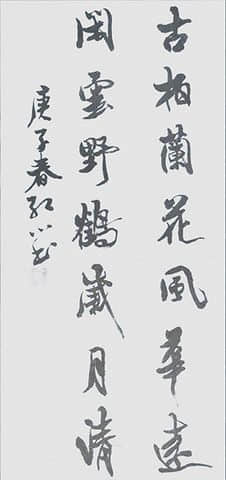 古柏蘭花風華遠
閑雲野鶴歲月清
庚子春紅心書